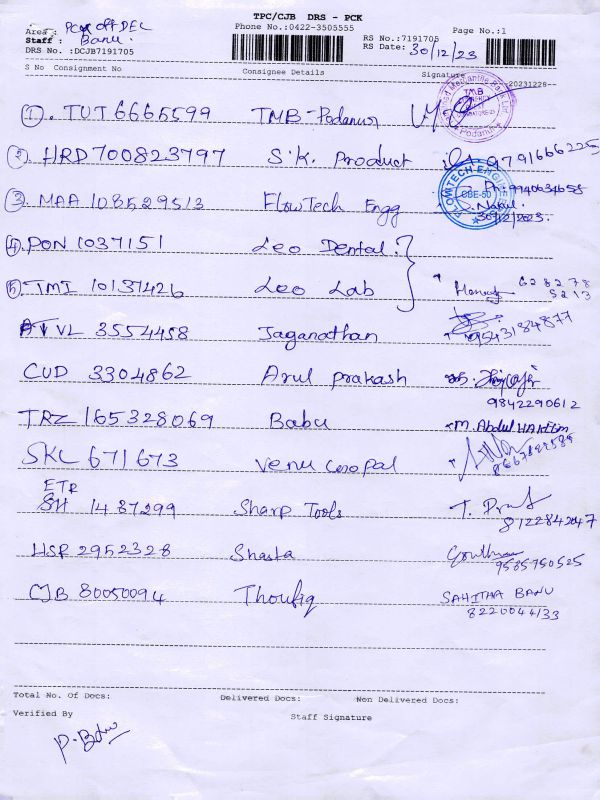 TPC/CJB DRS - PCK
Phone No.:0422-3505555
Area : PCK off DEL
Staff : Banu.
DRS No. :DCJB7191705
RS No.:7191705
RS Date: 30/12/23
Page No.:1
S No Consignment No Consignee Details Signature
-20231228-
① . TUT 6665599 TMB-Podanur
② HRD 700823797 S.K. Product 9791666225
③ MAA 108529513 FlowTech Engg Ph: 9940634658
Nakul
30/12/2023.
④ PON 1037151 Leo Dental.
⑤ TMI 10137426 Leo Lab 628278
5213
VL 3554458 Jaganathan 9543184877
CUD 3304862 Arul prakash
9842290612
TRZ 165328069 Babu M. Abdul HAKIM
SKL 671673 Venu Gopal
ETR 1487299 Sharp Tools 8122842047
HSR 2952328 Shasta 9585750525
CJB 80050094 Thoufiq SAHITHA BANU
8220044133
Total No. Of Docs: Delivered Docs: Non Delivered Docs:
Verified By Staff Signature